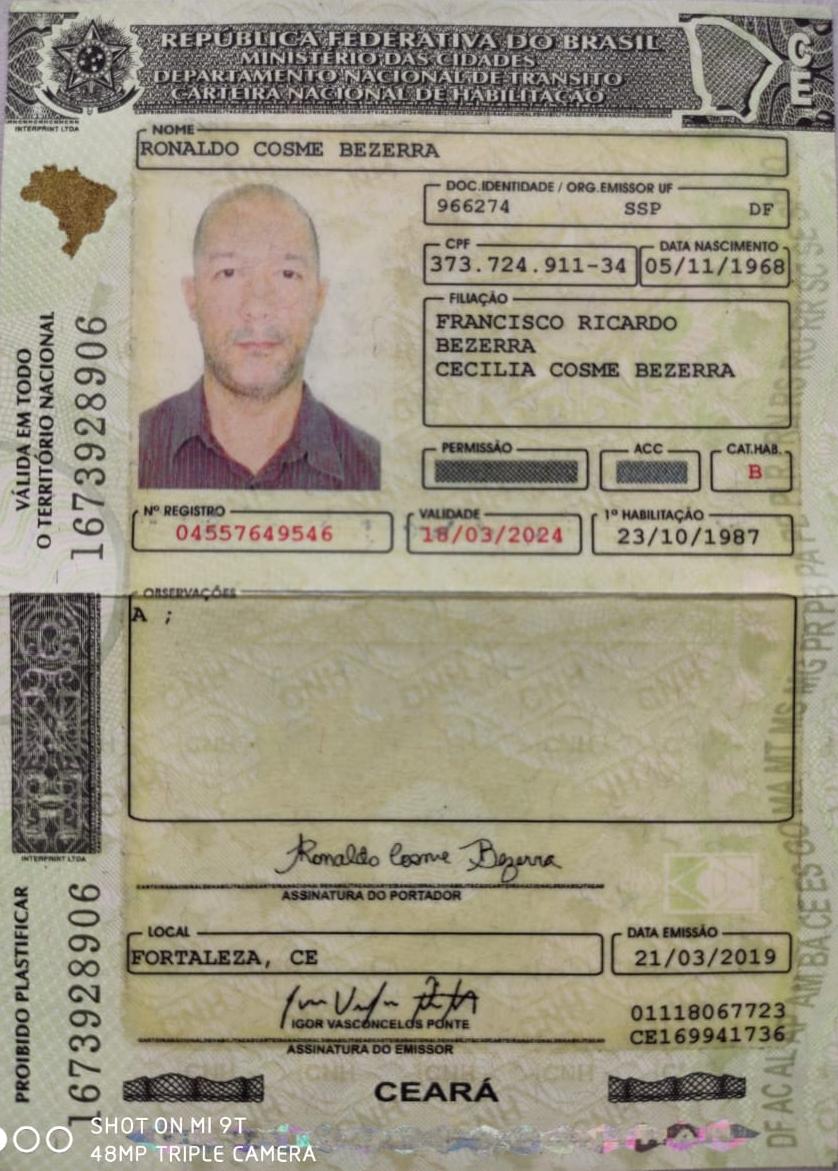 REPÚBLICA FEDERATIVA DO BRASIL
MINISTÉRIO DAS CIDADES
DEPARTAMENTO NACIONAL DE TRÂNSITO
CARTEIRA NACIONAL DE HABILITAÇÃO
INTERPRINT LTDA
CE
NOME
RONALDO COSME BEZERRA
DOC.IDENTIDADE / ORG.EMISSOR UF
966274 SSP DF
CPF
373.724.911-34
DATA NASCIMENTO
05/11/1968
FILIAÇÃO
FRANCISCO RICARDO
BEZERRA
CECILIA COSME BEZERRA
PERMISSÃO
ACC
CAT.HAB.
B
Nº REGISTRO
04557649546
VALIDADE
18/03/2024
1ª HABILITAÇÃO
23/10/1987
VÁLIDA EM TODO
O TERRITÓRIO NACIONAL
1673928906
OBSERVAÇÕES
A ;
INTERPRINT LTDA
Ronaldo Cosme Bezerra
ASSINATURA DO PORTADOR
LOCAL
FORTALEZA, CE
DATA EMISSÃO
21/03/2019
IGOR VASCONCELOS PONTE
ASSINATURA DO EMISSOR
01118067723
CE169941736
PROIBIDO PLASTIFICAR
1673928906
CEARÁ
SHOT ON MI 9T
48MP TRIPLE CAMERA